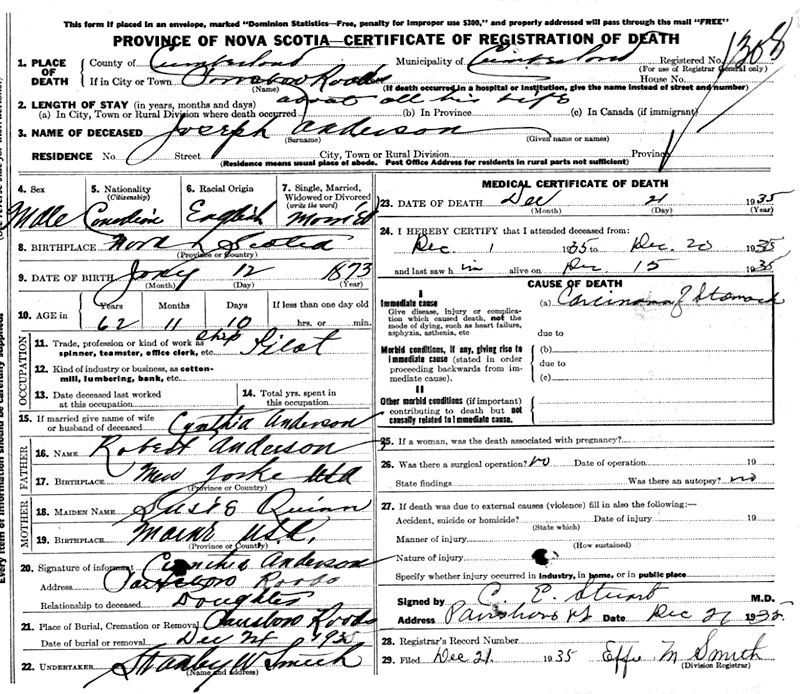 This form if placed in an envelope, marked "Dominion Statistics—Free, penalty for improper use $300," and properly addressed will pass through the mail "FREE"
PROVINCE OF NOVA SCOTIA—CERTIFICATE OF REGISTRATION OF DEATH
1. PLACE OF DEATH County of Cumberland Municipality of Cumberland Registered No. 1308
(For use of Registrar General only)
If in City or Town Parrsboro Roads House No.
(Name) (If death occurred in a hospital or institution, give the name instead of street and number)
2. LENGTH OF STAY (in years, months and days) about all his life
(a) In City, Town or Rural Division where death occurred (b) In Province (c) In Canada (if immigrant)
3. NAME OF DECEASED Joseph Anderson
(Surname) (Given name or names)
RESIDENCE No Street City, Town or Rural Division Province
(Residence means usual place of abode. Post Office Address for residents in rural parts not sufficient)
4. Sex 5. Nationality (Citizenship) 6. Racial Origin 7. Single, Married, Widowed or Divorced (write the word)
Male English
8. BIRTHPLACE Nova Scotia
(Province or Country)
9. DATE OF BIRTH 12 1873
(Month) (Day) (Year)
10. AGE in Years Months Days If less than one day old
62 11 10 hrs. or min.
OCCUPATION
11. Trade, profession or kind of work as spinner, teamster, office clerk, etc. Ship Pilot
12. Kind of industry or business, as cotton-mill, lumbering, bank, etc.
13. Date deceased last worked at this occupation 14. Total yrs. spent in this occupation
15. If married give name of wife or husband of deceased Cynthia Anderson
FATHER
16. NAME Robert Anderson
17. BIRTHPLACE New
(Province or Country)
MOTHER
18. MAIDEN NAME Susie Quinn
19. BIRTHPLACE Maine
(Province or Country)
20. Signature of informant Anderson
Address Roads
Relationship to deceased Daughter
21. Place of Burial, Cremation or Removal Parrsboro Roads
Date of burial or removal Dec 24 1935
22. UNDERTAKER Stanley W Smith
(Name and address)
Every item of information should be carefully supplied
MEDICAL CERTIFICATE OF DEATH
23. DATE OF DEATH Dec 21 1935
(Month) (Day) (Year)
24. I HEREBY CERTIFY that I attended deceased from:
Dec. 1 1935 to Dec. 20 1935
and last saw him alive on Dec. 15 1935
CAUSE OF DEATH
I
Immediate cause
Give disease, injury or complication which caused death, not the mode of dying, such as heart failure, asphyxia, asthenia, etc
(a) Carcinoma of Stomach
due to
Morbid conditions, if any, giving rise to immediate cause (stated in order proceeding backwards from immediate cause).
(b)
due to
(c)
II
Other morbid conditions (if important) contributing to death but not causally related to immediate cause.
25. If a woman, was the death associated with pregnancy?
26. Was there a surgical operation? no Date of operation 19
State findings Was there an autopsy? no
27. If death was due to external causes (violence) fill in also the following:—
Accident, suicide or homicide? Date of injury 19
(State which)
Manner of injury
(How sustained)
Nature of injury
Specify whether injury occurred in industry, in home, or in public place
Signed by C E Stuart M.D.
Address Parrsboro Date Dec 1935
28. Registrar's Record Number
29. Filed Dec 21 1935 Effie M Smith
(Division Registrar)